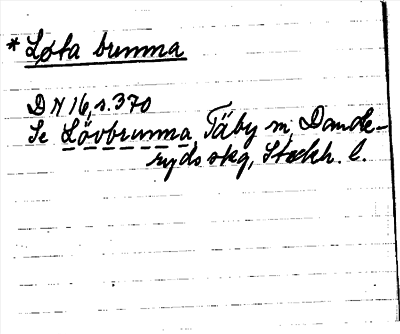 * Løfa brunna
DN 16, s. 370
Se Lövbrunna, Täby sn, Dande-
ryds skg, Stockh. l.